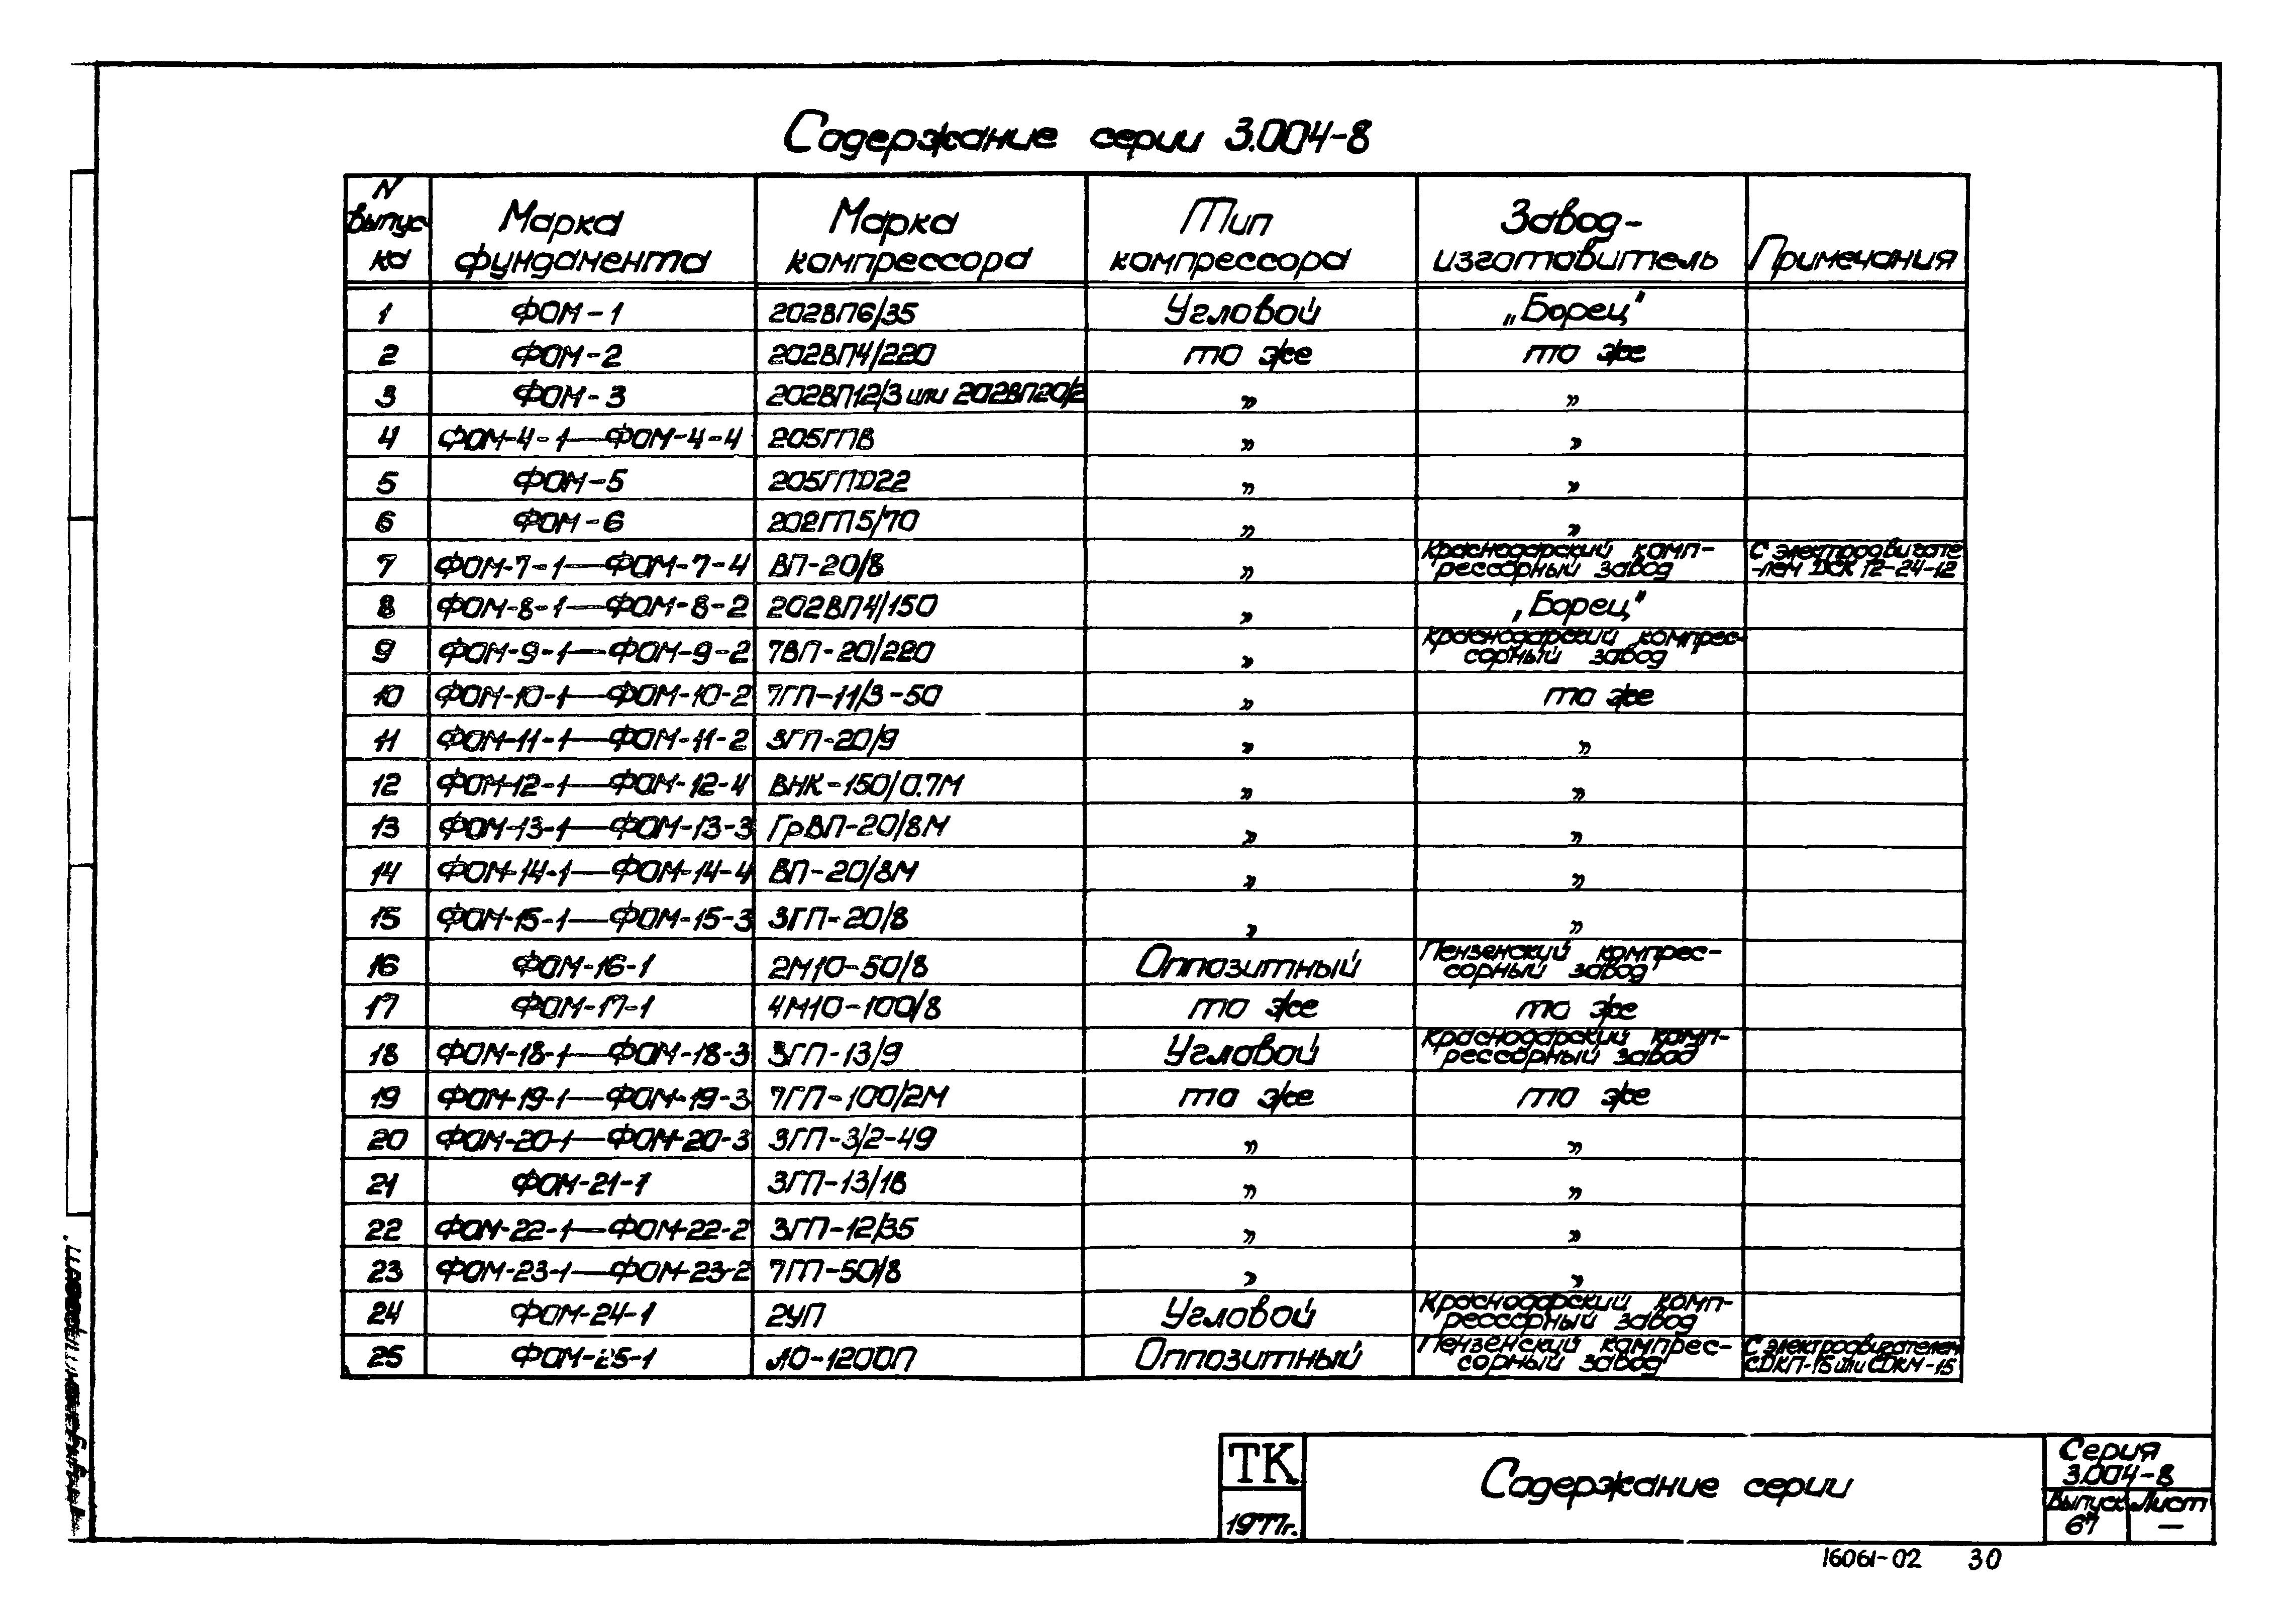 Содержание серии 3.004-8
N выпус- ка | Марка фундамента | Марка компрессора | Тип компрессора | Завод- изготовитель | Примечания
1 | ФОМ-1 | 202ВП6/35 | Угловой | „Борец"
2 | ФОМ-2 | 202ВП4/220 | то же | то же
3 | ФОМ-3 | 202ВП12/3 или 202ВП20/2 | „ | „
4 | ФОМ-4-1—ФОМ-4-4 | 205ГПВ | „ | „
5 | ФОМ-5 | 205ГПД22 | „ | „
6 | ФОМ-6 | 202ГП5/70 | „ | „
7 | ФОМ-7-1—ФОМ-7-4 | ВП-20/8 | „ | Краснодарский комп- рессорный завод | С электродвигате -лем ДСК 12-24-12
8 | ФОМ-8-1—ФОМ-8-2 | 202ВП4/150 | „ | „Борец"
9 | ФОМ-9-1—ФОМ-9-2 | 7ВП-20/220 | „ | Краснодарский компрес- сорный завод
10 | ФОМ-10-1—ФОМ-10-2 | 7ГП-11/3-50 | „ | то же
11 | ФОМ-11-1—ФОМ-11-2 | 3ГП-20/9 | „ | „
12 | ФОМ-12-1—ФОМ-12-4 | ВНК-150/0.7М | „ | „
13 | ФОМ-13-1—ФОМ-13-3 | ГрВП-20/8М | „ | „
14 | ФОМ-14-1—ФОМ-14-4 | ВП-20/8М | „ | „
15 | ФОМ-15-1—ФОМ-15-3 | 3ГП-20/8 | „ | „
16 | ФОМ-16-1 | 2М10-50/8 | Оппозитный | Пензенский компрес- сорный завод
17 | ФОМ-17-1 | 4М10-100/8 | то же | то же
18 | ФОМ-18-1—ФОМ-18-3 | 3ГП-13/9 | Угловой | Краснодарский комп- рессорный завод
19 | ФОМ-19-1—ФОМ-19-3 | 7ГП-100/2М | то же | то же
20 | ФОМ-20-1—ФОМ-20-3 | 3ГП-3/2-49 | „ | „
21 | ФОМ-21-1 | 3ГП-13/18 | „ | „
22 | ФОМ-22-1—ФОМ-22-2 | 3ГП-12/35 | „ | „
23 | ФОМ-23-1—ФОМ-23-2 | 7ГП-50/8 | „ | „
24 | ФОМ-24-1 | 2УП | Угловой | Краснодарский комп- рессорный завод
25 | ФОМ-25-1 | АО-1200П | Оппозитный | Пензенский компрес- сорный завод | С электродвигателем СДКП-15 или СДКМ-15
ТК
1977г.
Содержание серии
Серия
3.004-8
Выпуск Лист
67 —
16061-02 30